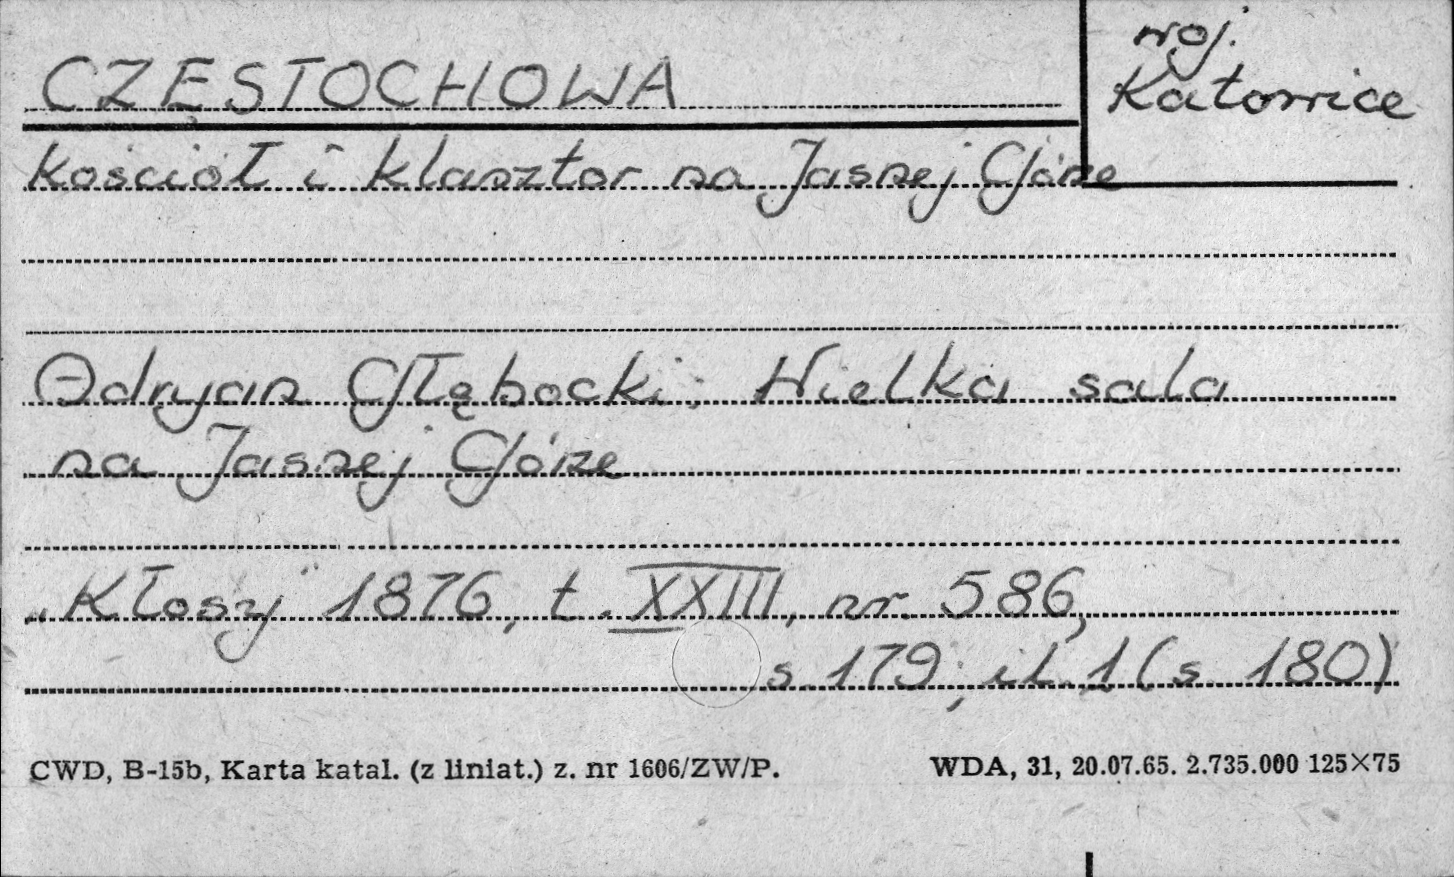 woj.
Katowice
CZĘSTOCHOWA
Kościół i klasztor na Jasnej Górze
Adryan Głębocki; Wielka sala
na Jasnej Górze
„Kłosy" 1876, t. XXIII, nr 586,
s. 179; il. 1 (s 180)
CWD, B-15b, Karta katal. (z liniat.) z. nr 1606/ZW/P.
WDA, 31, 20.07.65. 2.735.000 125×75